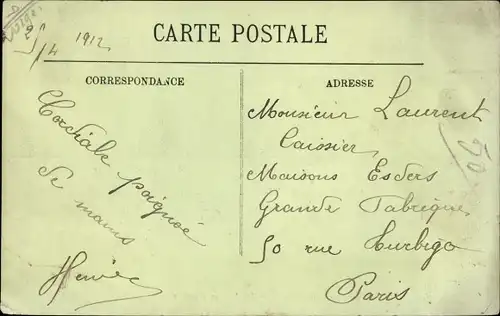 1912
CARTE POSTALE
CORRESPONDANCE
ADRESSE
Cordiale poignée
de mains
Monsieur Laurent
Caissier
Maisons Esders
Grande Fabrique
50 rue Turbigo
Paris
70